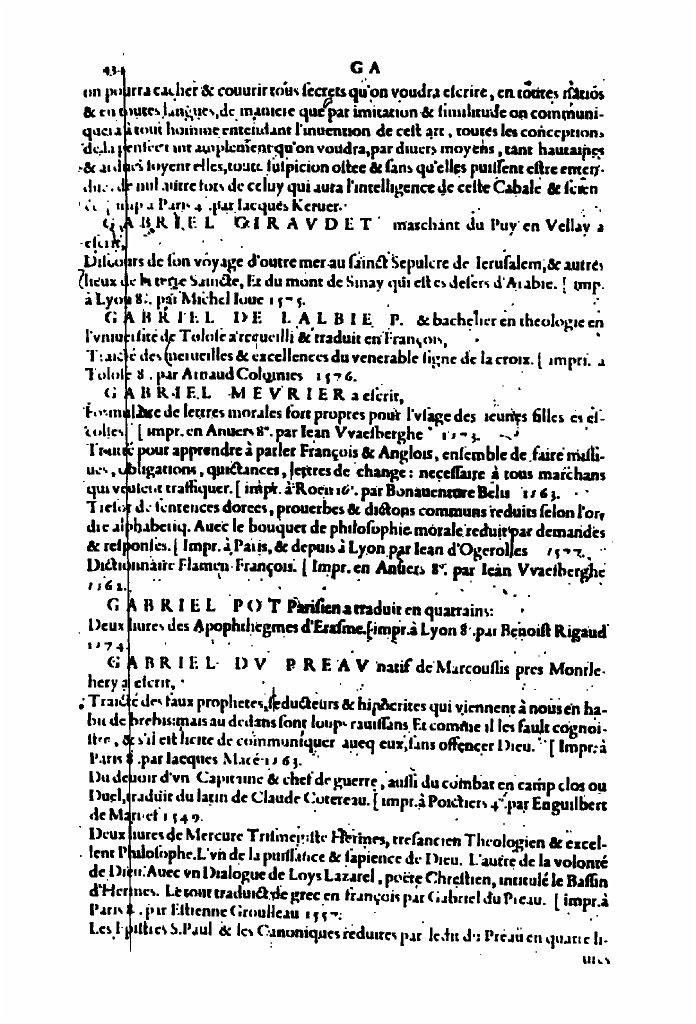 434 GA
on pourra cacher & couurir tous secrets qu'on voudra escrire, en toutes
& en toutes langues, de maniere que par imitation & similitude on communi-
quera à tout homme entendant l'inuention de cest art, toutes les conceptions
de la pensee aussi amplement qu'on voudra, par diuers moyens, tant hautaines
& ardues soyent elles, toute suspicion ostee & sans qu'elles puissent estre enten-
dues de nul autre fors de celuy qui aura l'intelligence de ceste Cabale & scien
imp. à Paris 4. par Iacques Keruer.
GABRIEL GIRAVDET marchant du Puy en Vellay a
escrit,
Discours de son voyage d'outre mer au sainct Sepulcre de Ierusalem, & autres
lieux de la terre Saincte, Et du mont de Sinay qui est es desers d'Arabie. [ imp.
à Lyon 8. par Michel Ioue 1575.
GABRIEL DE LALBIE P. & bachelier en theologie en
l'vniuersité de Tolose a recueilli & traduit en François,
Traicté des merueilles & excellences du venerable signe de la croix. [ impri. a
Tolose 8. par Arnaud Colomies 1576.
GABRIEL MEVRIER a escrit,
Formulaire de lettres morales fort propres pour l'vsage des ieunes filles es es-
colles. [ impr. en Anuers 8°. par Iean Vvaesberghe 1573.
Traité pour apprendre à parler François & Anglois, ensemble de faire missi-
ues, obligations, quictances, lettres de change: necessaire à tous marchans
qui veulent traffiquer. [ impr. à Roen 16°. par Bonauenture Belis 1563.
Tresor de sentences dorees, prouerbes & dictons communs reduits selon l'or-
dre alphabetiq. Auec le bouquet de philosophie morale reduit par demandes
& responses. [ Impr. à Paris, & depuis à Lyon par Iean d'Ogerolles 1577.
Dictionnaire Flamen-François. [ Impr. en Anuers 8°. par Iean Vvaesberghe
1562.
GABRIEL POT Parisien a traduit en quatrains:
Deux liures des Apophthegmes d'Erasme. [ impr. à Lyon 8°. par Benoist Rigaud
1574.
GABRIEL DV PREAV natif de Marcoussis pres Montle-
hery a escrit,
Traicté des faux prophetes, seducteurs & hipocrites qui viennent à nous en ha-
bit de brebis: mais au dedans sont loups rauissans. Et comme il les fault cognoi-
stre, & s'il est licite de communiquer aueq eux, sans offencer Dieu. [ Impr. à
Paris 8. par Iacques Macé 1563.
Du deuoir d'vn Capitaine & chef de guerre, aussi du combat en camp clos ou
Duel, traduit du latin de Claude Cotereau. [ impr. à Poictiers 4°. par Enguilbert
de Marnef 1549.
Deux liures de Mercure Trismegiste Hermes, tresancien Theologien & excel-
lent Philosophe. L'vn de la puissance & sapience de Dieu. L'autre de la volonté
de Dieu. Auec vn Dialogue de Loys Lazarel, poëte Chrestien, intitulé le Bassin
d'Hermes. Le tout traduict de grec en françois par Gabriel du Preau. [ impr. à
Paris 8. par Estienne Groulleau 1557.
Les Epistres S. Paul & les Canoniques reduites par ledit du Preau en quatre li-
ures